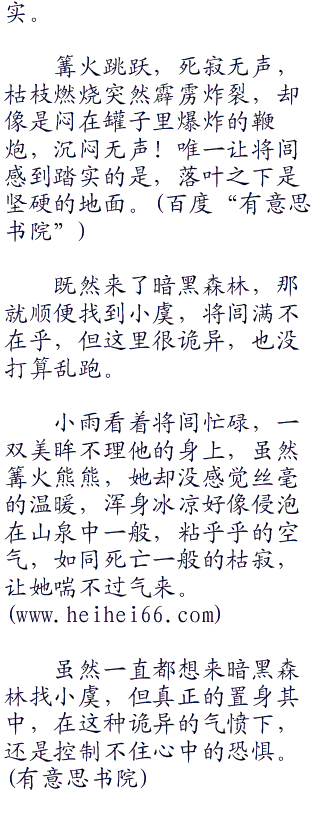 实。
篝火跳跃，死寂无声，
枯枝燃烧突然霹雳炸裂，却
像是闷在罐子里爆炸的鞭
炮，沉闷无声！唯一让将闾
感到踏实的是，落叶之下是
坚硬的地面。(百度“有意思
书院”)
既然来了暗黑森林，那
就顺便找到小虞，将闾满不
在乎，但这里很诡异，也没
打算乱跑。
小雨看着将闾忙碌，一
双美眸不理他的身上，虽然
篝火熊熊，她却没感觉丝毫
的温暖，浑身冰凉好像侵泡
在山泉中一般，粘乎乎的空
气，如同死亡一般的枯寂，
让她喘不过气来。
(www.heihei66.com)
虽然一直都想来暗黑森
林找小虞，但真正的置身其
中，在这种诡异的气愤下，
还是控制不住心中的恐惧。
(有意思书院)